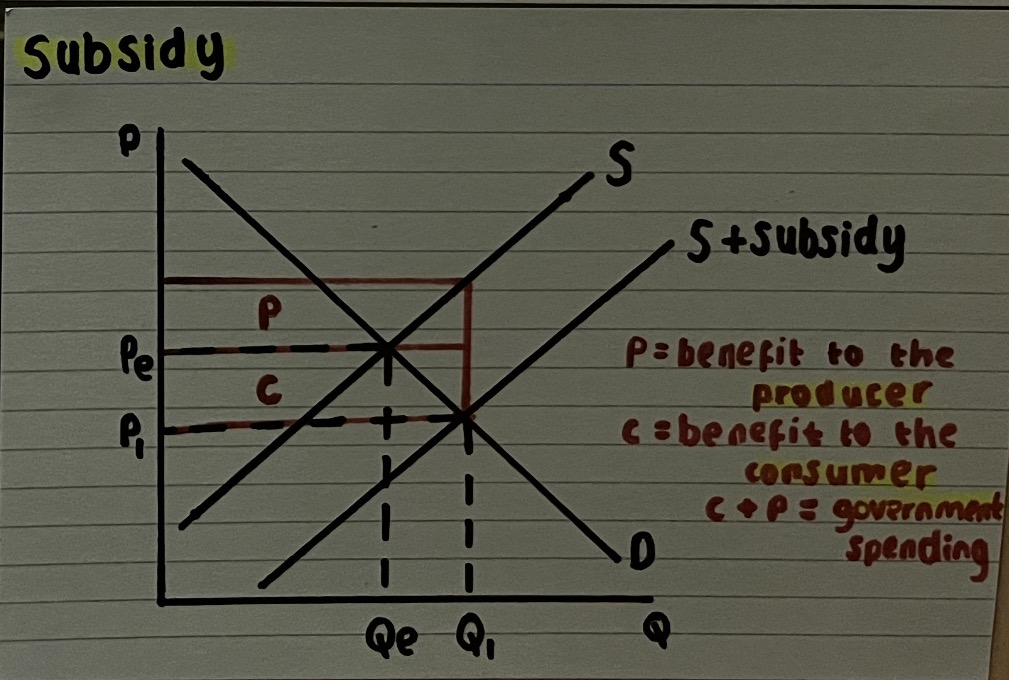 Subsidy
P
S
S+subsidy
P
Pe
C
P1
P = benefit to the
producer
C = benefit to the
consumer
C + P = government
spending
D
Qe
Q1
Q